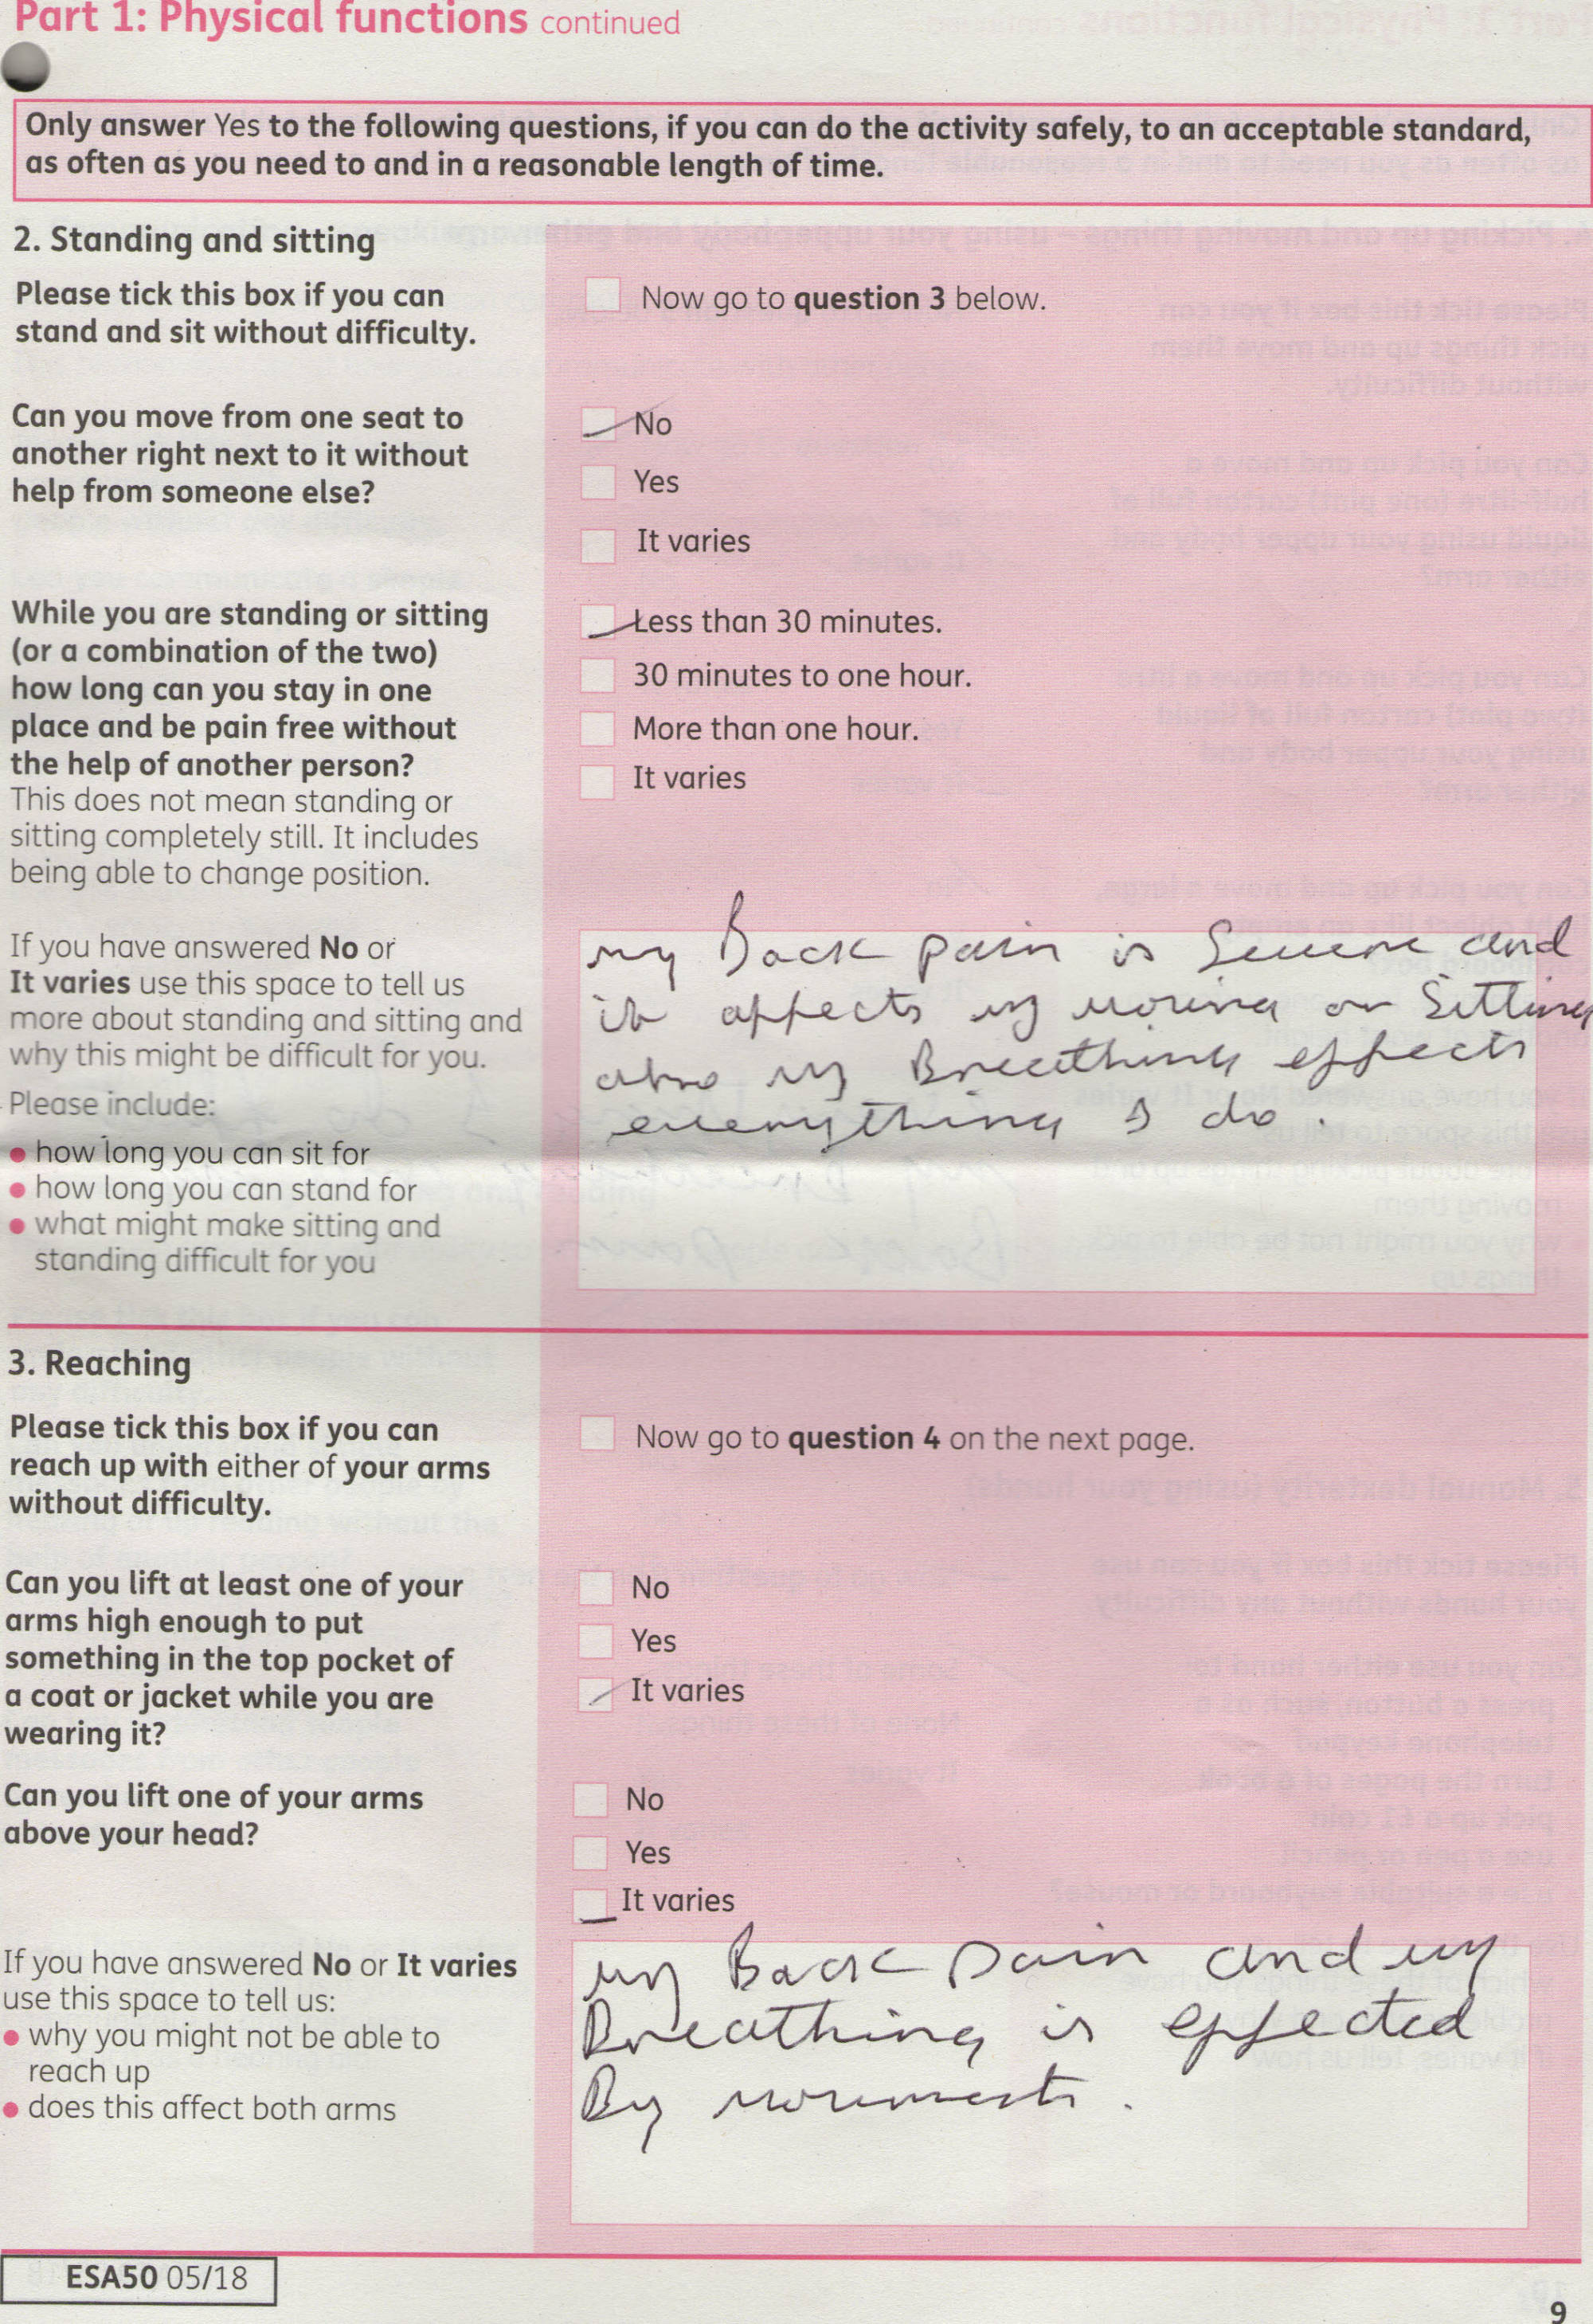 Part 1: Physical functions continued
Only answer Yes to the following questions, if you can do the activity safely, to an acceptable standard,
as often as you need to and in a reasonable length of time.
2. Standing and sitting
Please tick this box if you can
stand and sit without difficulty.
Now go to question 3 below.
Can you move from one seat to
another right next to it without
help from someone else?
No
Yes
It varies
While you are standing or sitting
(or a combination of the two)
how long can you stay in one
place and be pain free without
the help of another person?
This does not mean standing or
sitting completely still. It includes
being able to change position.
Less than 30 minutes.
30 minutes to one hour.
More than one hour.
It varies
If you have answered No or
It varies use this space to tell us
more about standing and sitting and
why this might be difficult for you.
Please include:
• how long you can sit for
• how long you can stand for
• what might make sitting and
standing difficult for you
my Back pain is Severe and
it affects my moving or Sitting
also my Breathing effects
everything I do.
3. Reaching
Please tick this box if you can
reach up with either of your arms
without difficulty.
Now go to question 4 on the next page.
Can you lift at least one of your
arms high enough to put
something in the top pocket of
a coat or jacket while you are
wearing it?
No
Yes
It varies
Can you lift one of your arms
above your head?
No
Yes
It varies
If you have answered No or It varies
use this space to tell us:
• why you might not be able to
reach up
• does this affect both arms
my Back Pain and my
Breathing is effected
By movements.
ESA50 05/18
9